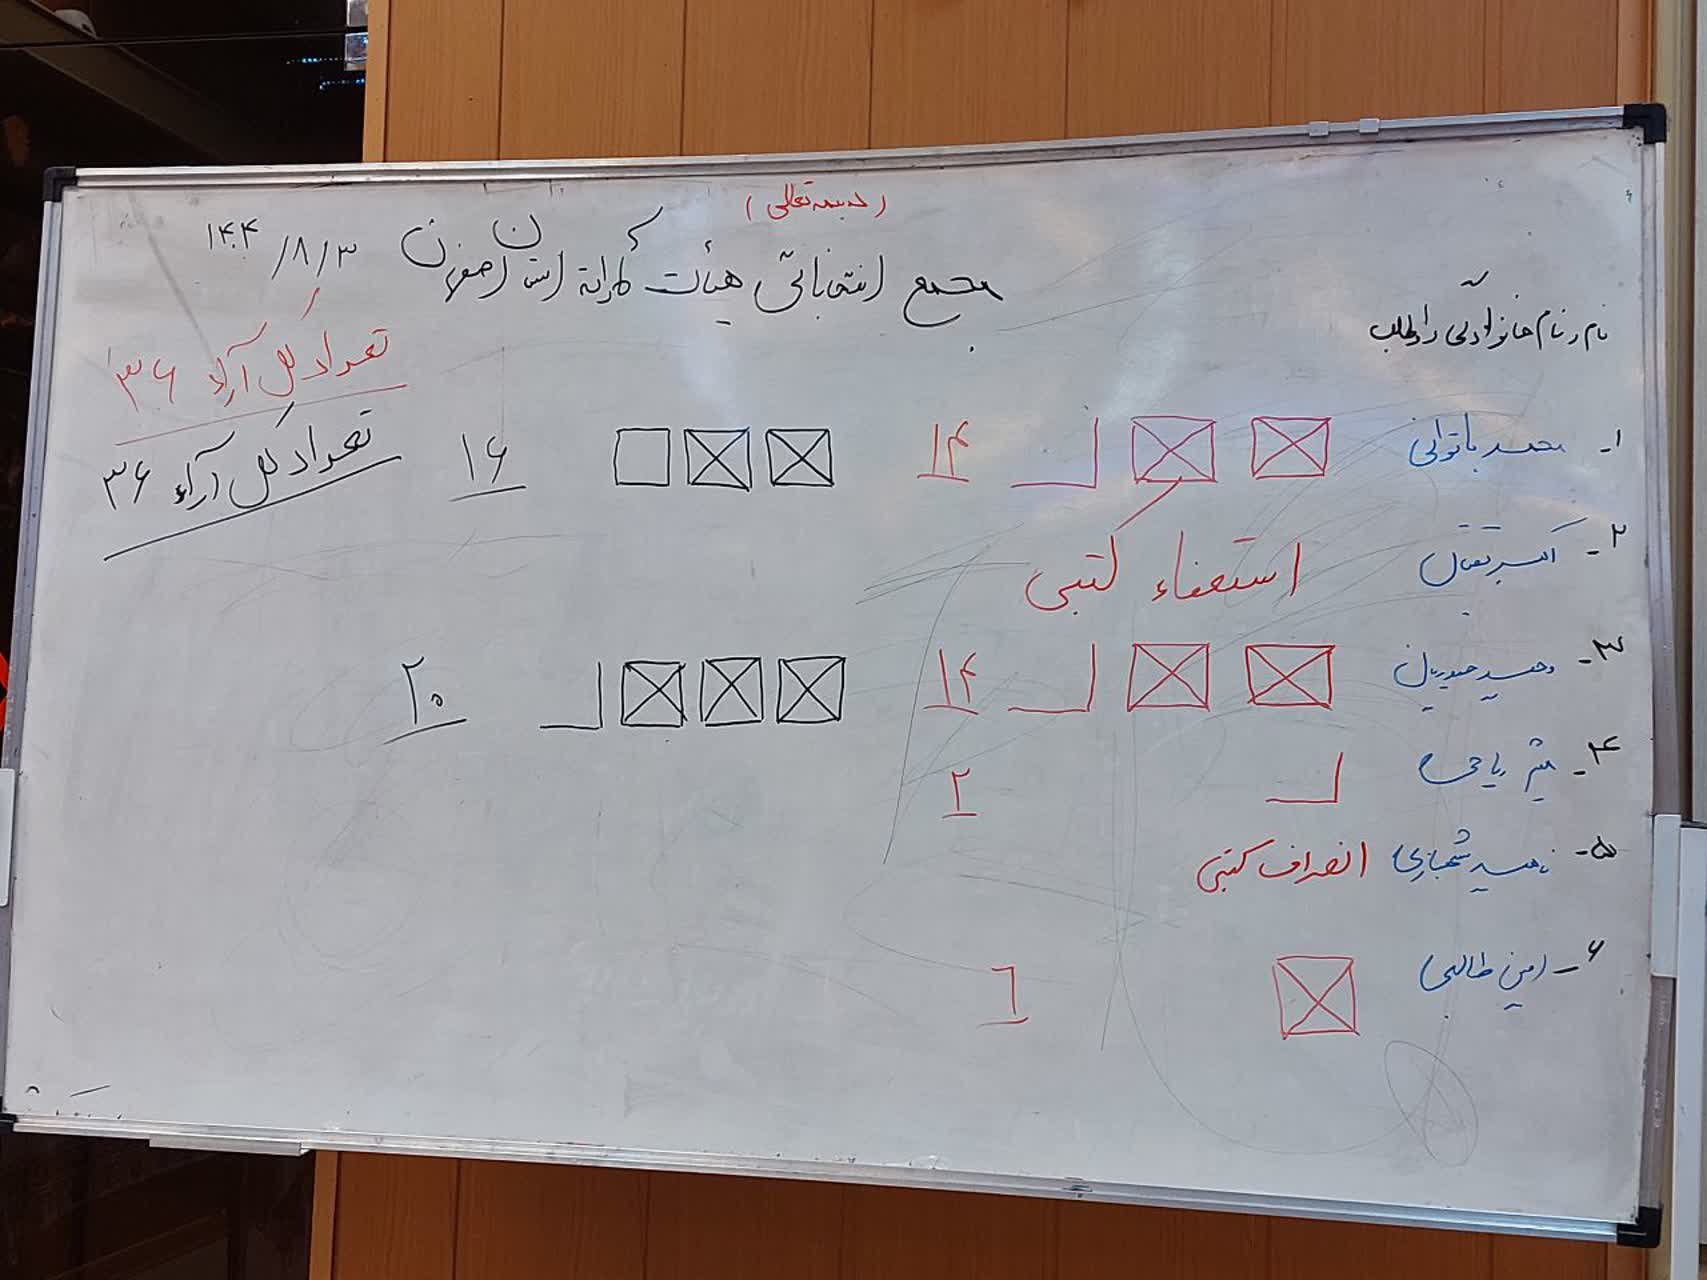 (بسمه تعالی)
مجمع انتخاباتی هیأت کاراته استان اصفهان ۱۴۰۴/۸/۳
نام و نام خانوادگی داوطلب
تعداد کل آراء ۳۶
تعداد کل آراء ۳۶
۱- محمد باتوانی ۱۴ ۱۶
۲- اکبر بقال استعفاء کتبی
۳- وحید حیدریان ۱۴ ۲۰
۴- ۲
۵- ناهید شجاری انصراف کتبی
۶- امین طالبی ۶